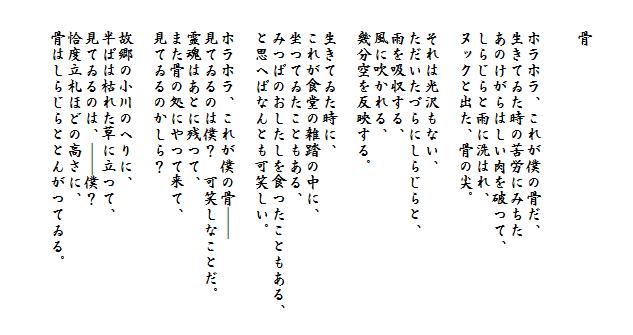 骨
ホラホラ、これが僕の骨だ、
生きてゐた時の苦労にみちた
あのけがらはしい肉を破つて、
しらじらと雨に洗はれ、
ヌックと出た、骨の尖。
それは光沢もない、
ただいたづらにしらじらと、
雨を吸収する、
風に吹かれる、
幾分空を反映する。
生きてゐた時に、
これが食堂の雑踏の中に、
坐つてゐたこともある、
みつばのおしたしを食つたこともある、
と思へばなんとも可笑しい。
ホラホラ、これが僕の骨――
見てゐるのは僕? 可笑しなことだ。
霊魂はあとに残つて、
また骨の処にやつて来て、
見てゐるのかしら?
故郷の小川のへりに、
半ばは枯れた草に立つて、
見てゐるのは、――僕?
恰度立札ほどの高さに、
骨はしらじらととんがつてゐる。